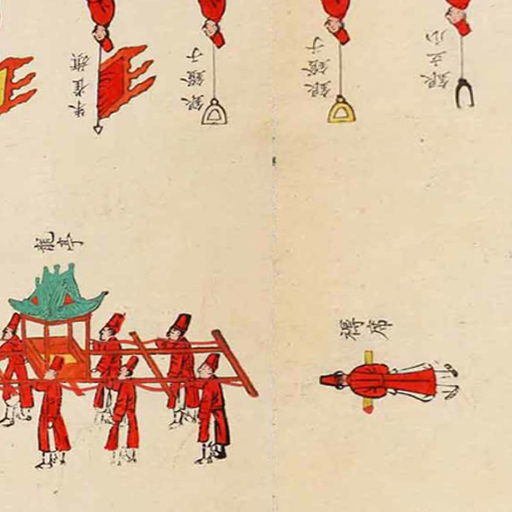 朱雀旗
銀鐙子
銀鐙子
銀立瓜
龍亭
褥席